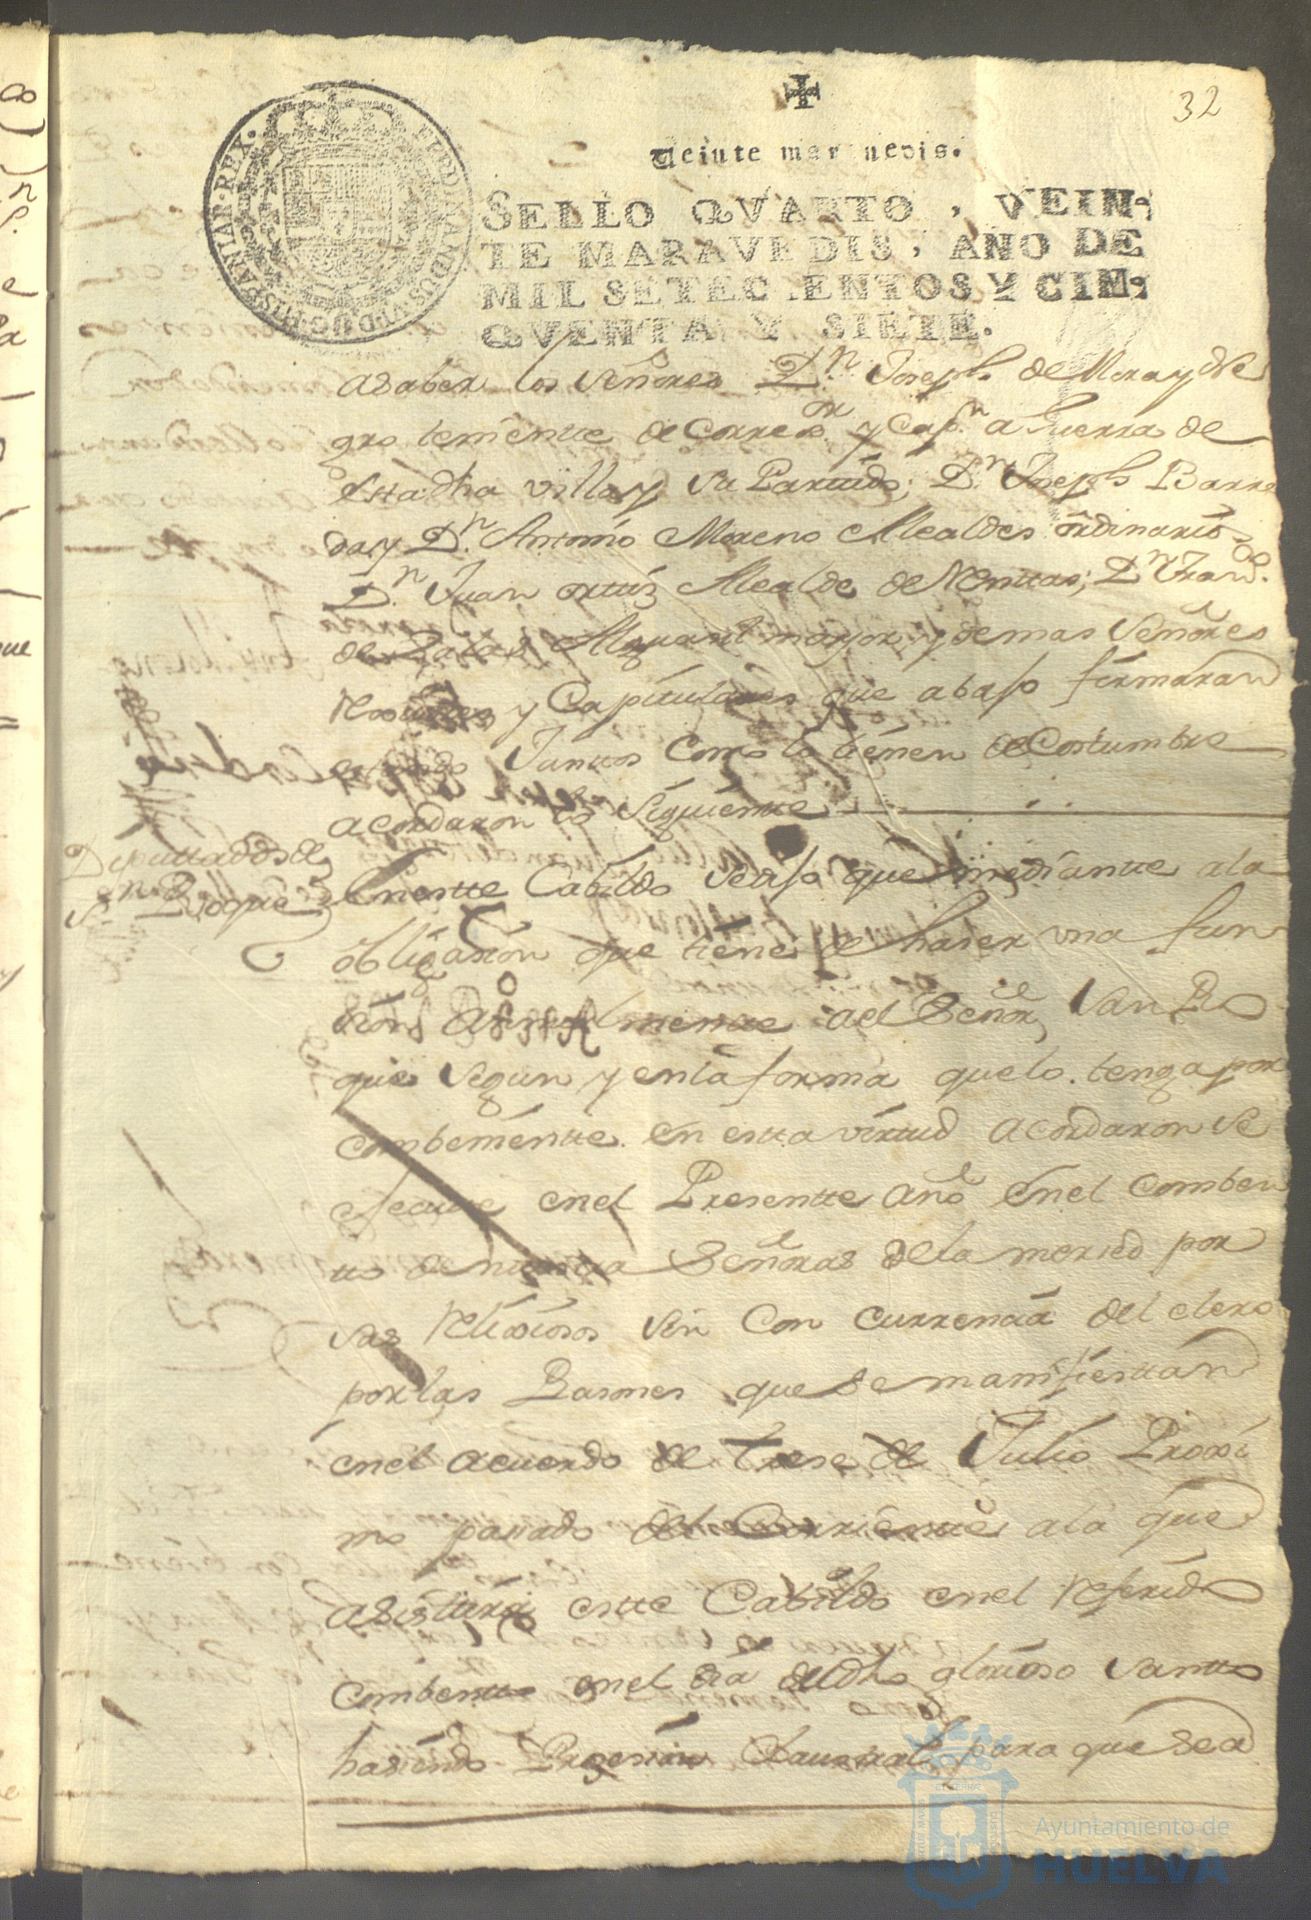 32
Veinte maravedis.
SELLO QVARTO, VEIN-
TE MARAVEDIS, AÑO DE
MIL SETECIENTOS Y CIN-
QVENTA Y SIETE.
FERDINANDUS VI D G HISPANIAR REX
asaber los señores Dn. Joseph de Mora y Ne
gro teniente de Corregor. y Capn. a Guerra de
esta dha villa y su Partido; Dn. Joseph Barre
da, y Dn. Antonio Moreno Alcaldes ordinarios
Dn. Juan ortiz Alcalde de Millones; Dn. Franco.
de Alguasil mayor, y demas Señores
y Capitulares que abajo firmaran
estando Juntos como lo tienen de Costumbre
acordaron lo siguiente
Diputtados de
Sn. Roque
En este Cabildo se dijo que mediante a la
obligasion que tiene de haser una fun
sion Anualmente al Señor San Ro
que segun y en la forma que lo tenga por
combeniente. en esta virtud acordaron se
efecute en el Presentte año en el Comben
tto de nuestra Señora de la merced por
sus Relixiosos sin Con currencia del clero
por las Rasones que se manifiestan
en el acuerdo de trese de Julio Proxi
mo pasado del Corriente a la que
asistirá este Cabildo en el referido
combento en el dia del dho glorioso santto
hasiendo Prosesion Claustral, para que sea
Ayuntamiento de
HUELVA